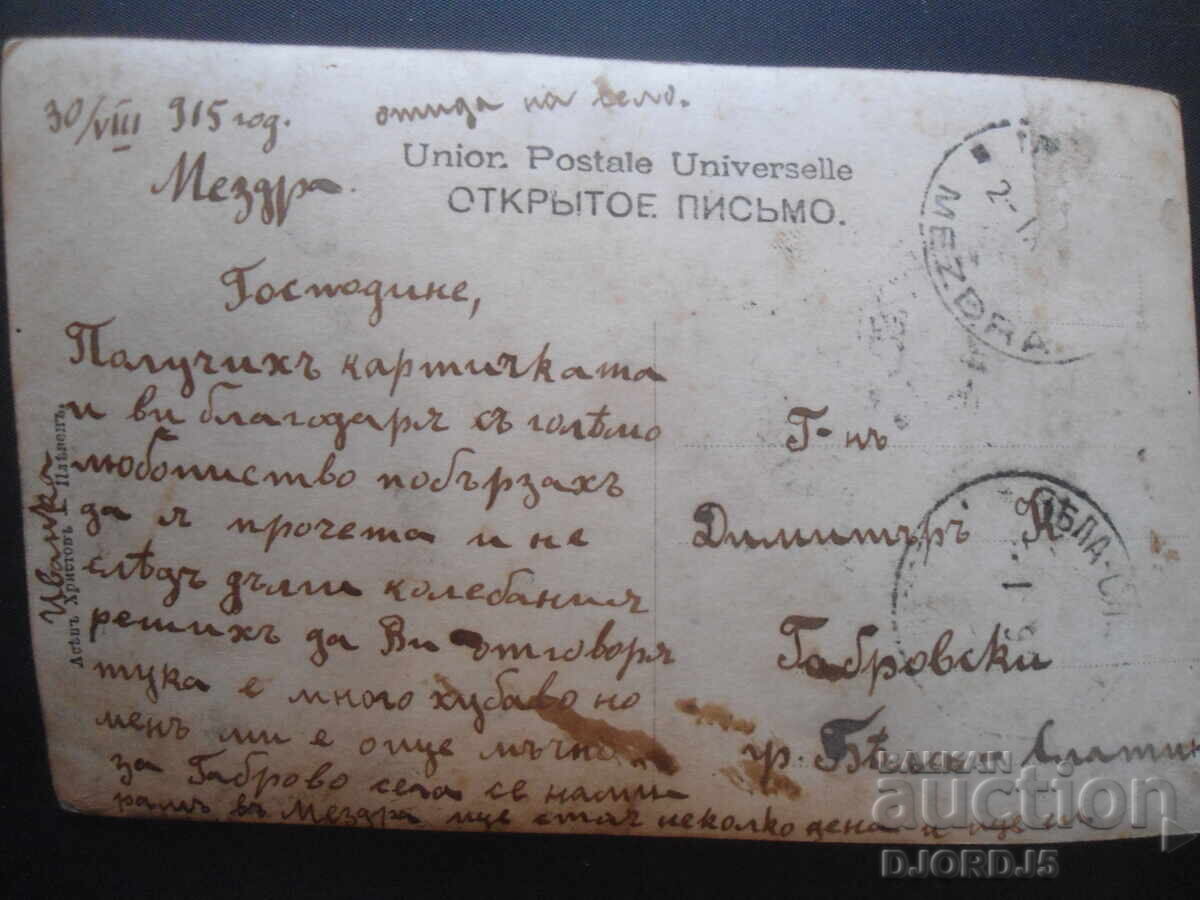 30/VIII 915 год.
отида на село.
Мездра.
Union Postale Universelle
ОТКРЫТОЕ ПИСЬМО.
MEZDRA
Господине,
Получихъ картичката
и ви благодаря съ голѣмо
любописство побързахъ
да я прочета и не
слѣдъ дълги колебания
решихъ да Ви ътговоря
тука е много хубаво но
менъ ми е още мъчно
за Габрово сега се нами
рамъ въ Мездра ще стоя неколко дена и ще
Иванка
Асѣнъ Христовъ Плѣвенъ.
Г-нъ
Димитъръ К
Габровски
гр. Бѣла Слатин
БѢЛА-СЛ
BALKAN
auction
DJORDJ5